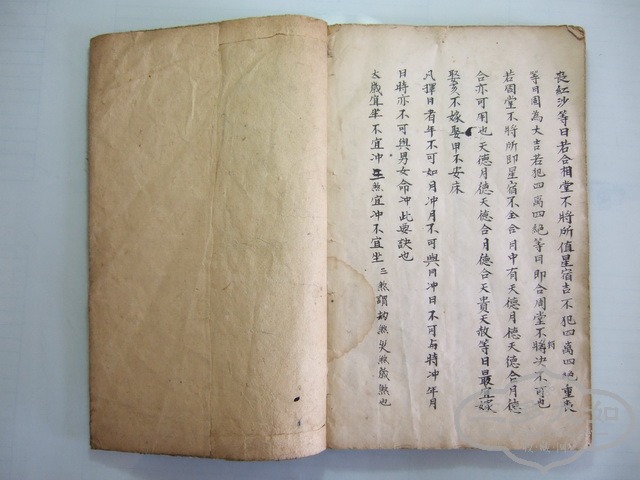 喪紅沙等日若合相堂不將所值星宿吉不犯四离四絕重喪
等日固為大吉若犯四离四絕等日即合周堂不將决不可也
符
若周堂不將所即星宿不全合月中有天德月德天德合月德
合亦可用也天德月德天德合月德合天貴天赦等日最宜嫁
娶亥不嫁娶甲不安床
凡擇日者年不可如月冲月不可與日冲日不可与時冲年月
日時亦不可與男女命冲此要訣也
太歲宜坐不宜冲三煞宜冲不宜坐三煞謂劫煞災煞歲煞也